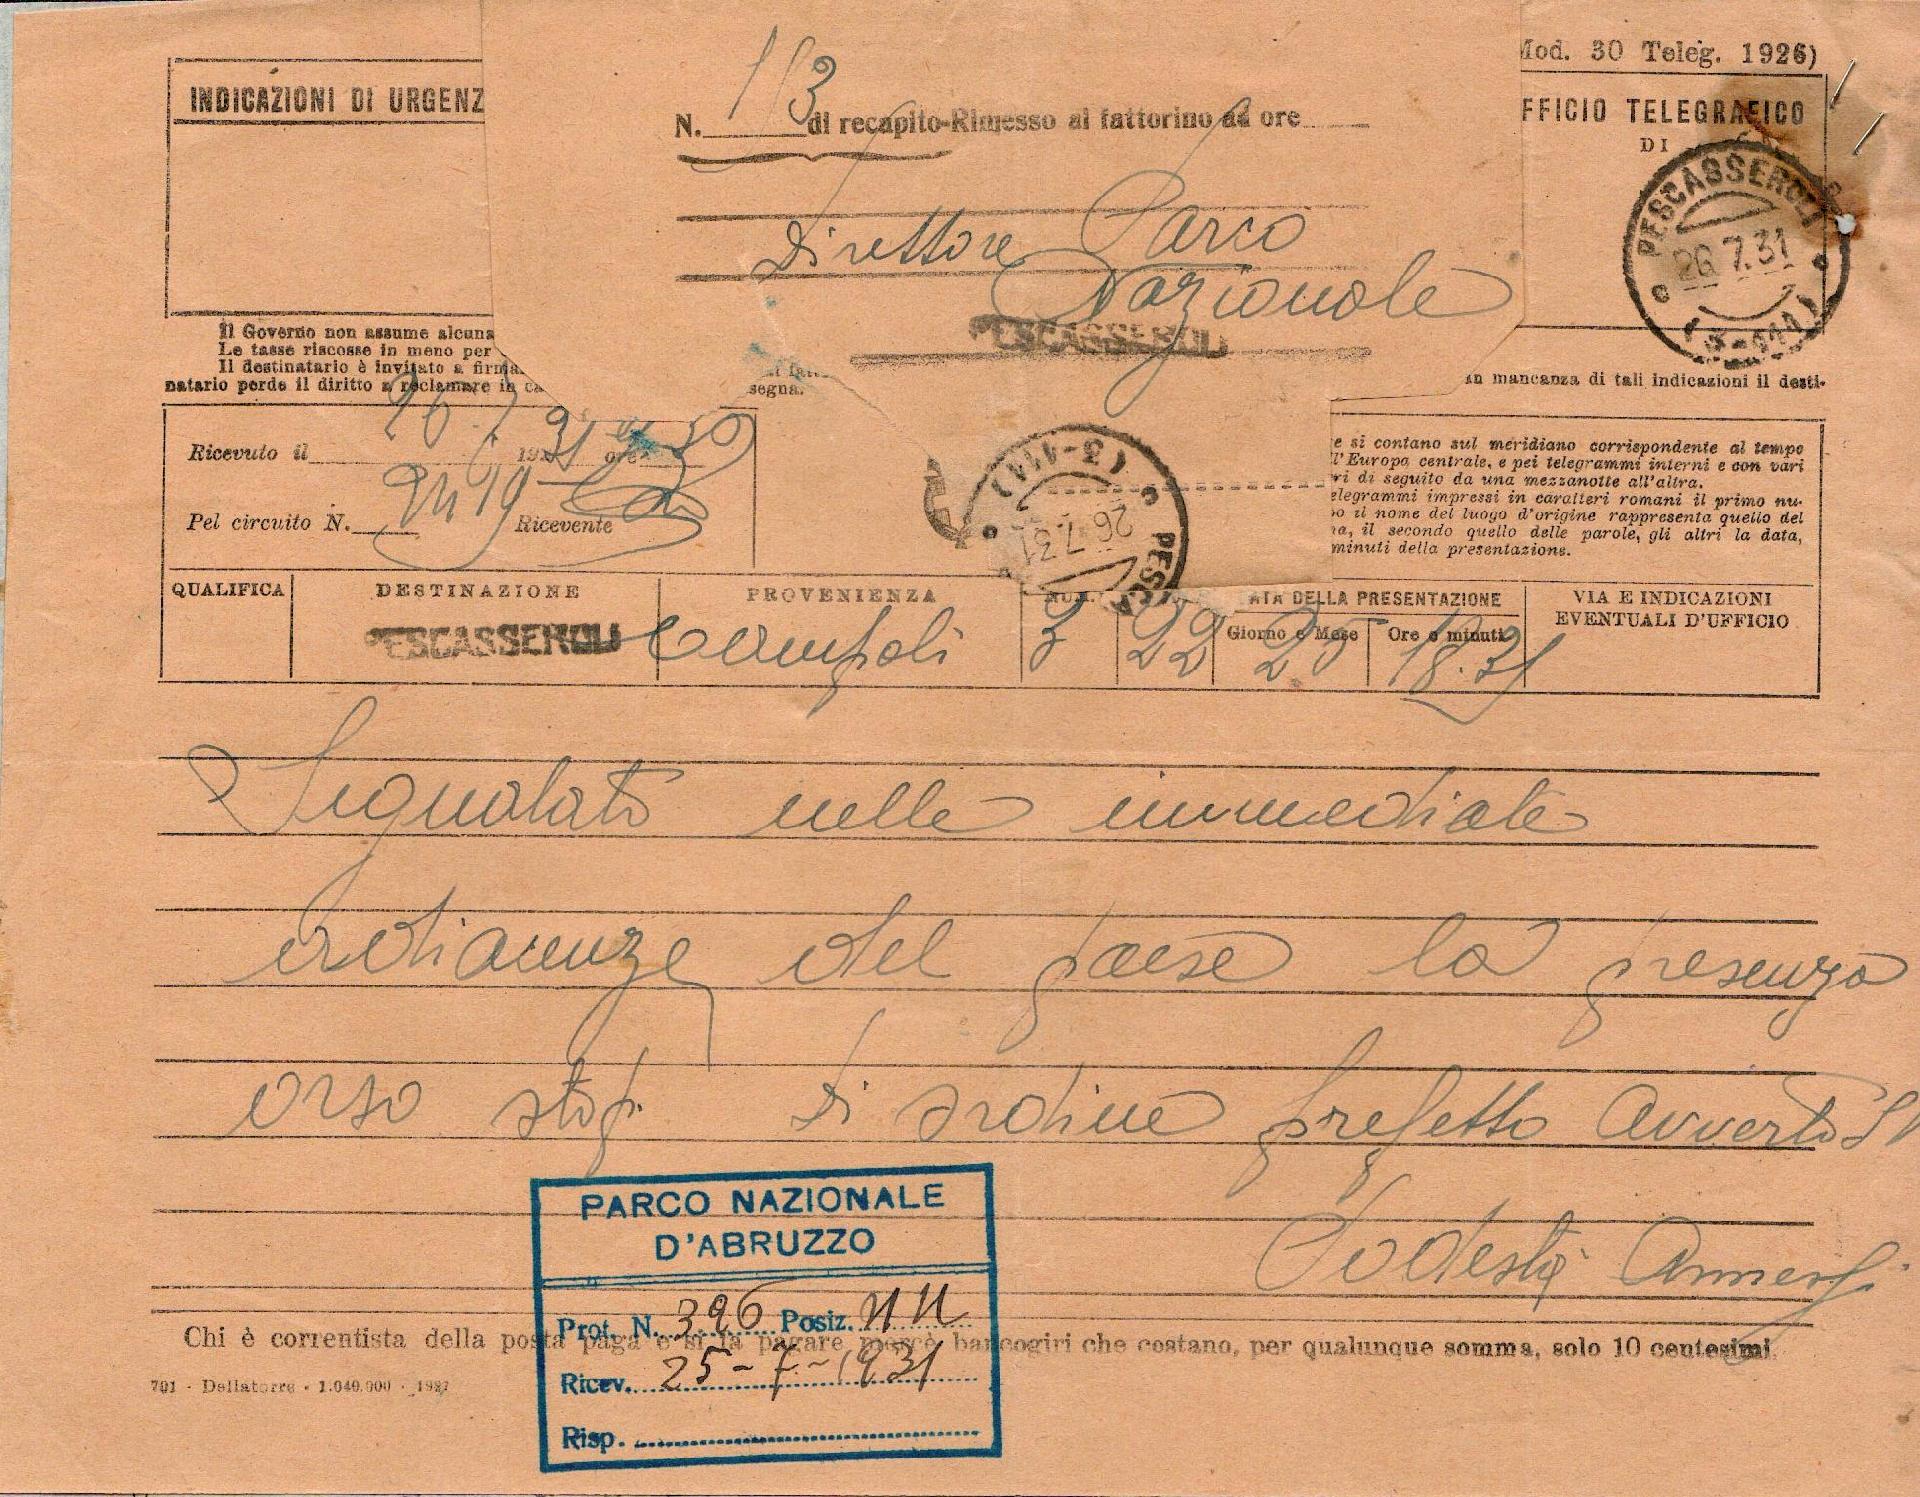 (Mod. 30 Teleg. 1926)
INDICAZIONI DI URGENZ
N. 113 di recapito-Rimesso al fattorino ad ore
FFICIO TELEGRAFICO
DI
PESCASSEROLI
26.7.31
Direttore Parco
Nazionale
PESCASSEROLI
Il Governo non assume alcuna
Le tasse riscosse in meno per
Il destinatario è invitato a firma
natario perde il diritto a reclamare in ca
segna.
in mancanza di tali indicazioni il desti-
Ricevuto il 26.7 1931 ore
Pel circuito N. Ricevente
e si contano sul meridiano corrispondente al tempo
l'Europa centrale, e pei telegrammi interni e con vari
ri di seguito da una mezzanotte all'altra.
elegrammi impressi in caratteri romani il primo nu-
o il nome del luogo d'origine rappresenta quello del
a, il secondo quello delle parole, gli altri la data,
minuti della presentazione.
PESCA
26.7.31
QUALIFICA DESTINAZIONE PROVENIENZA NUM. ATA DELLA PRESENTAZIONE VIA E INDICAZIONI
EVENTUALI D'UFFICIO
Giorno e Mese Ore e minuti
PESCASSEROLI Campoli 3 22 25 18.31
Segnalato nelle immediate
vicinanze del paese la presenza
orso stop. Di ordine prefetto avverto SV
Podestà
PARCO NAZIONALE
D'ABRUZZO
Prot. N. 396 Posiz.
Chi è correntista della posta paga e si fa pagare mercè bancogiri che costano, per qualunque somma, solo 10 centesimi
Ricev. 25-7-1931
701 - Dellatorre - 1.040.000 - 1927
Risp.